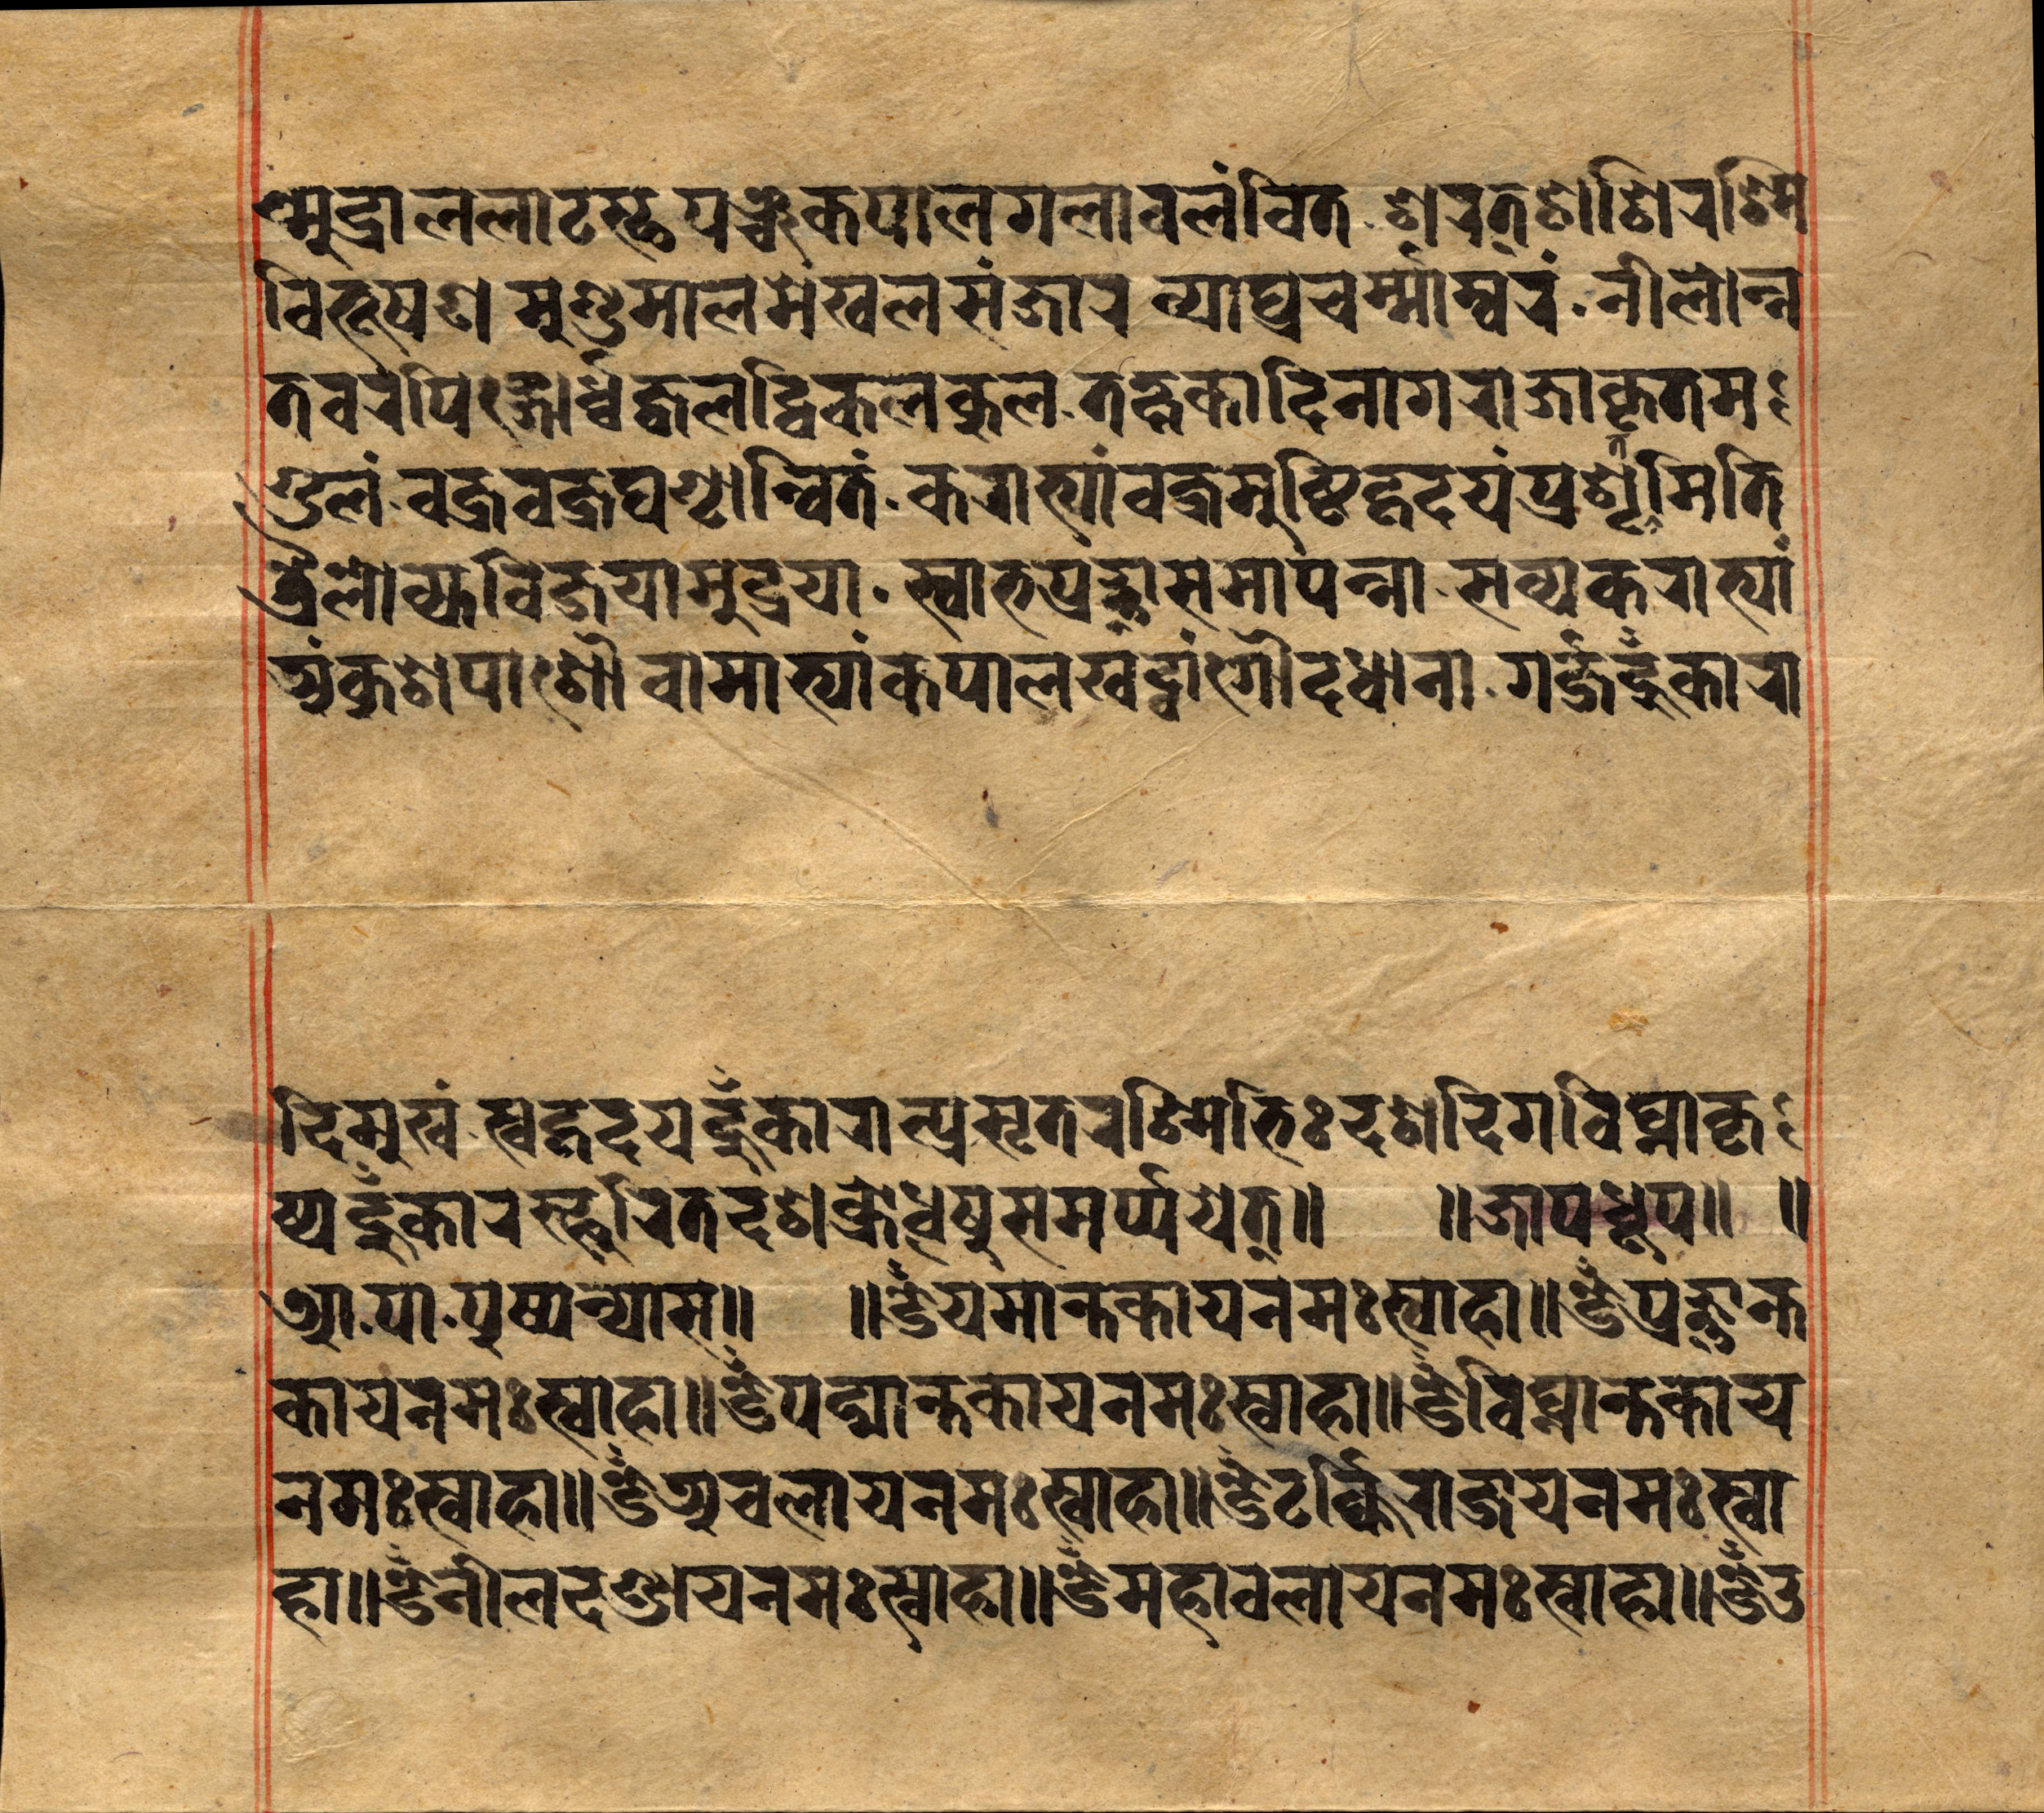 ण्मुद्रालललाटस्थपञ्चकपालगलावलंवित. शरत्शशिरश्मि
विभूषण मुण्डमालमेंखलसंजार व्याघ्रचर्म्माम्वरं. नीलोन्न
तवरपिङ्गोर्ध्वज्वलद्विकलकुल. तक्षकादिनागराजाकृतम
ण्डलं. वज्रवज्रघण्टान्वितं. कराभ्यांवज्रमुष्टिहृदयंप्रशृमिति
त्रैलोक्यविजयामुद्रया. स्वाभप्रज्ञासमापन्ना. सव्यकराभ्यां
अंकुशपाशौवामाभ्यांकपालखट्वांगौदधाना. गर्ज्जहूँकारा
दिमुखं. स्वहृदयहूँकारात्प्रसृतरश्मिभिः दशदिगविघ्नाकृ
ष्यहूँकारस्फुरितदशक्रोधेषुसमर्प्पयेत्॥ ॥जापधूप॥ ॥
आ.पा.पुष्पन्यास॥ ॥ॐयमान्तकायनमःस्वाहा॥ॐप्रज्ञान्त
कायनमःस्वाहा॥ॐपद्मान्तकायनमःस्वाहा॥ॐविघ्नान्तकाय
नमःस्वाहा॥ॐअचलायनमःस्वाहा॥ॐटर्क्किराजयनमःस्वा
हा॥ॐनीलदण्डायनमःस्वाहा॥ॐमहावलायनमःस्वाहा॥ॐउ